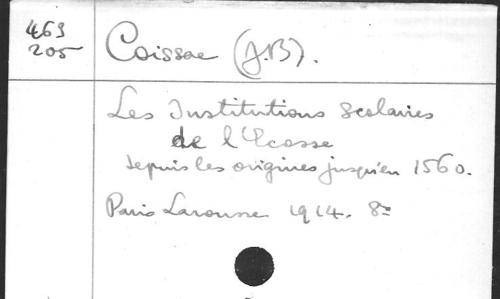 469
205
Coissac (J.B).
Les Institutions scolaires
de l'Ecosse
depuis les origines jusqu'en 1560.
Paris Larousse 1914. 8º